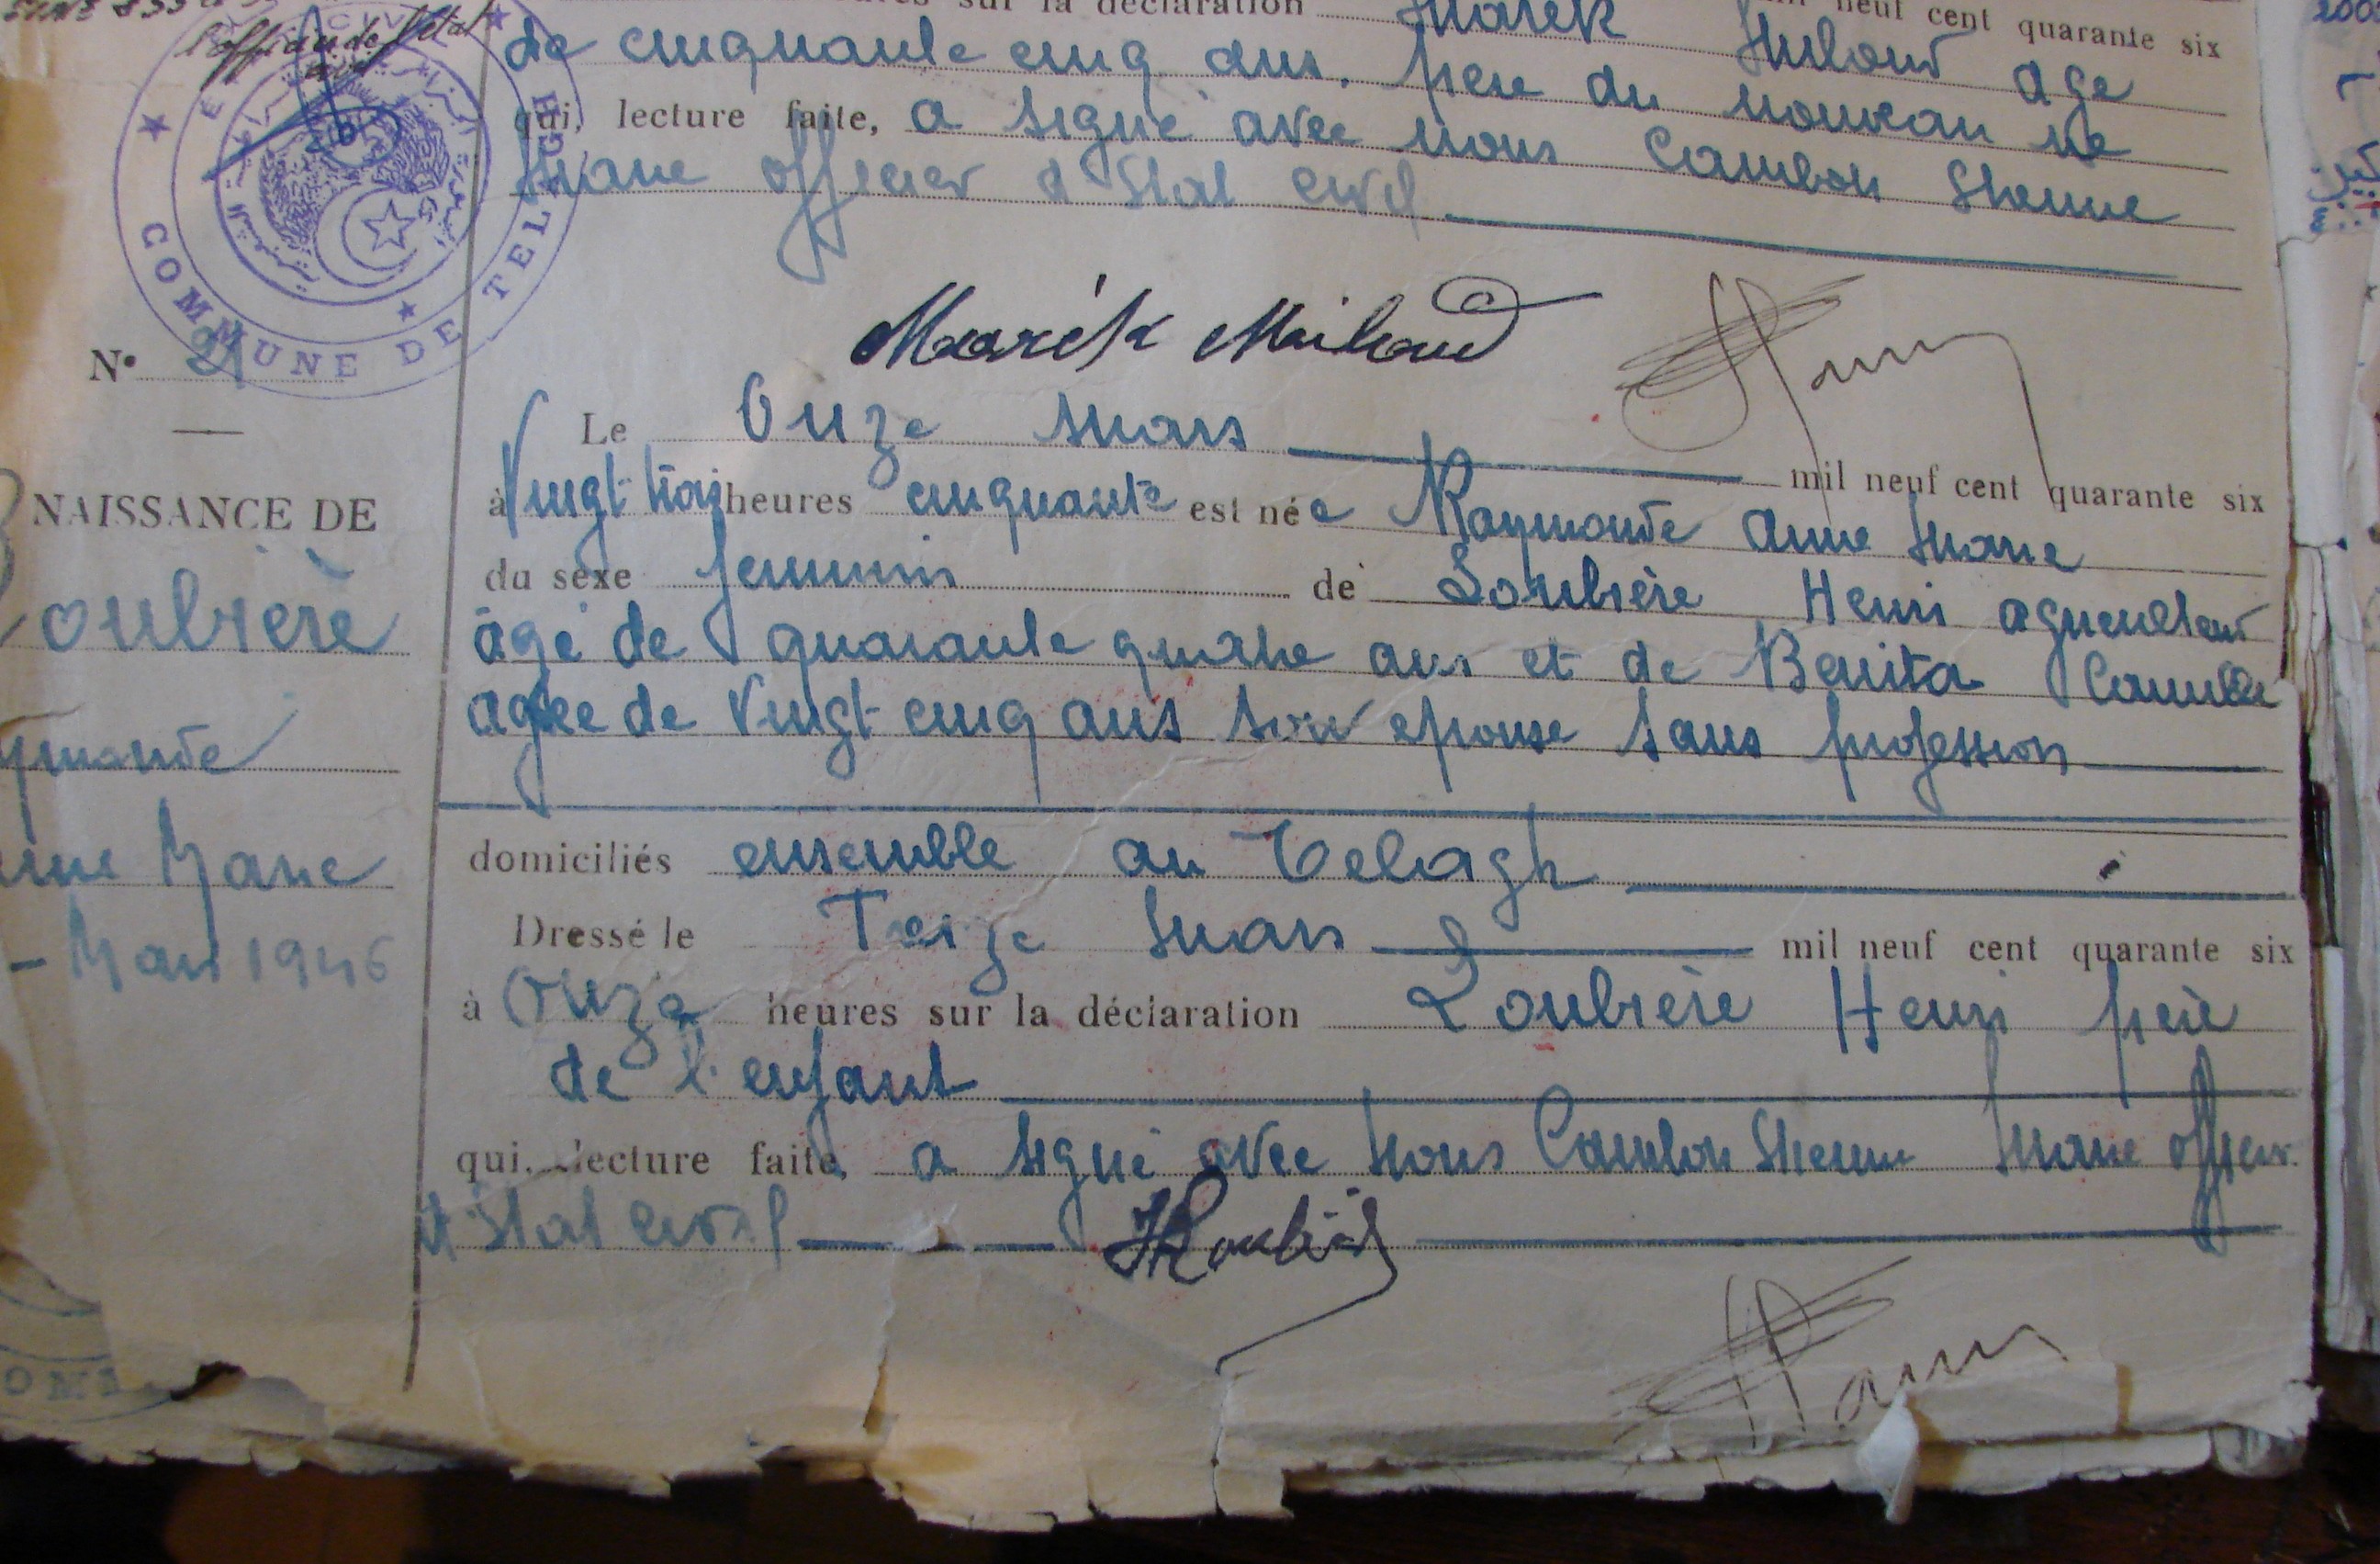 l'officier de l'état
civil
COMMUNE DE TELAGH
sur la déclaration Marek Miloud agé
neuf cent quarante six
de cinquante cinq ans, père du nouveau né
qui, lecture faite, a signé avec nous Cambon Etienne
Maire officier d'Etat civil
Marék Miloud
N° 21
NAISSANCE DE
Loubière
ymonde
Marie
Mars 1946
Le Onze Mars mil neuf cent quarante six
à Vingt trois heures cinquante est née Raymonde Anne Marie
du sexe feminin de Loubière Henri agriculteur
âgé de quarante quatre ans et de Benita Camille
agée de Vingt cinq ans son epouse sans profession
domiciliés ensemble au Telagh
Dressé le Treize Mars mil neuf cent quarante six
à Onze heures sur la déclaration Loubière Henri père
de l'enfant
qui, lecture faite, a signé avec Nous Cambon Etienne Maire officier
d'Etat civil
HLoubière